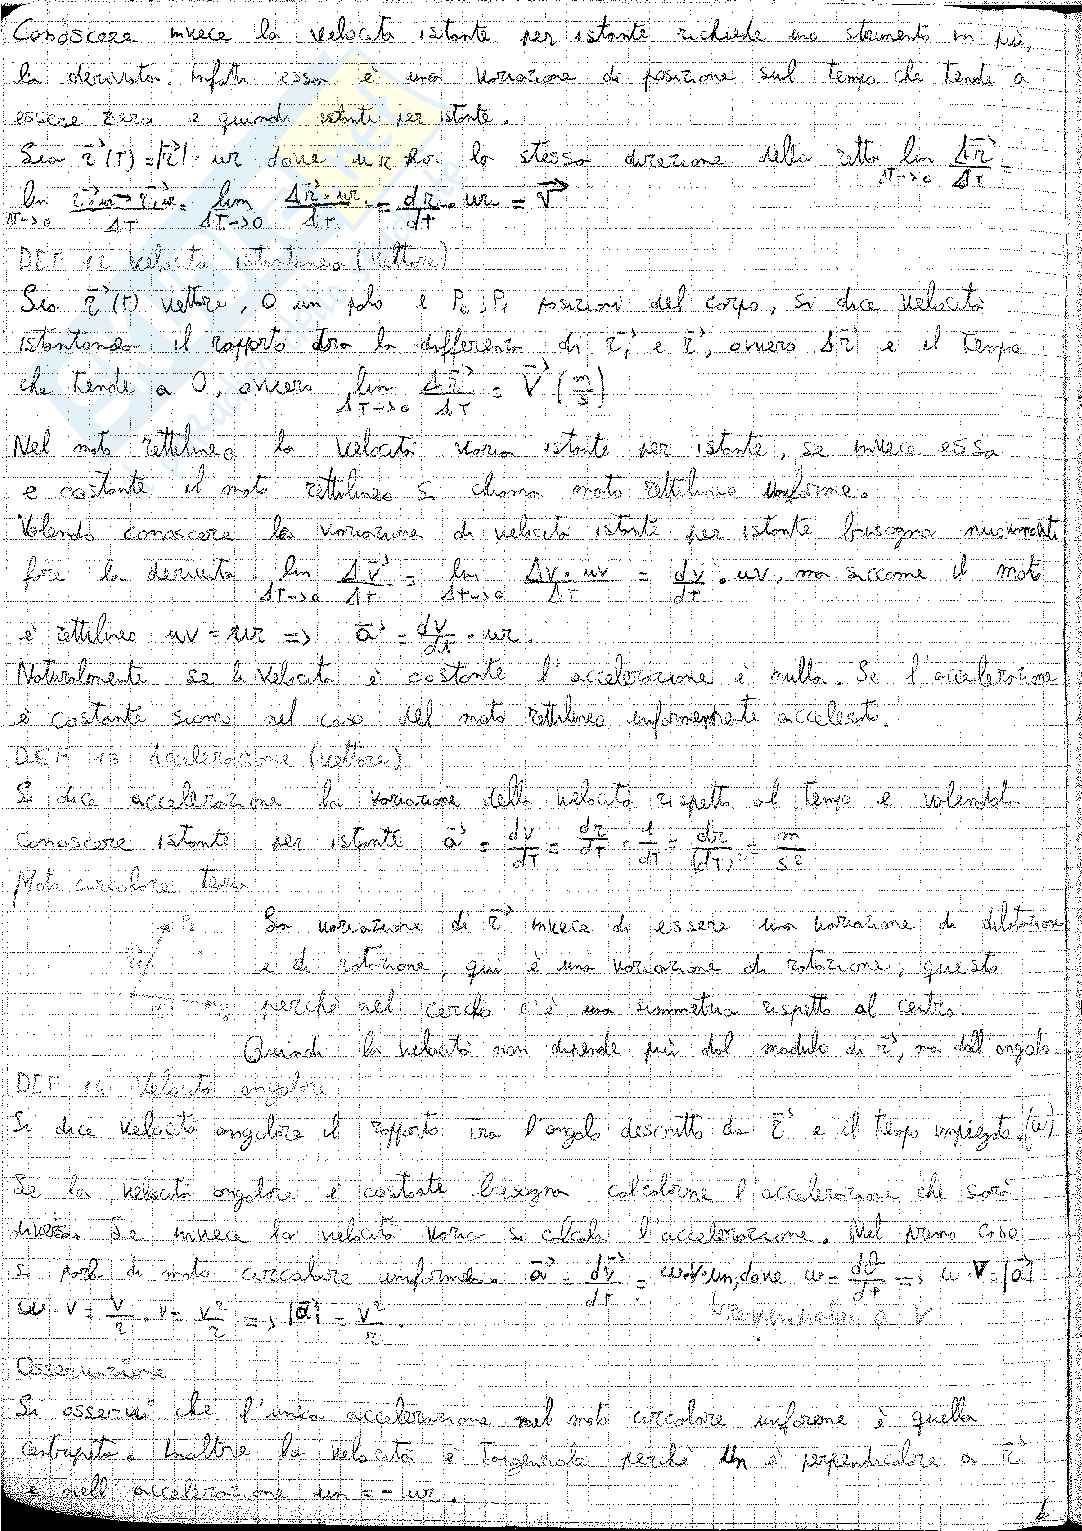 Conoscere invece la velocità istante per istante richiede uno strumento in più,
la derivata. Infatti essa è una variazione di posizione sul tempo che tende a
essere zero e quindi istante per istante.
Sia r⃗(T)=|r⃗|·ur dove ur ha la stessa direzione della retta lim ΔT→0 Δr⃗/ΔT =
lim ΔT→0 = lim ΔT→0 Δr⃗·ur/ΔT = dr/dt · ur = V⃗
DEF 12 Velocità istantanea (vettore)
Sia r⃗(T) vettore, O un polo e P₀, P₁ posizioni del corpo, si dice velocità
istantanea il rapporto tra la differenza di r⃗ e r⃗, ovvero Δr⃗ e il tempo
che tende a 0, ovvero lim ΔT→0 Δr⃗/ΔT = V⃗ (m/s)
Nel moto rettilineo la velocità varia istante per istante, se invece essa
e costante il moto rettilineo si chiama moto rettilineo uniforme.
Volendo conoscere la variazione di velocità istante per istante bisogna nuovamente
fare la derivata lim ΔT→0 ΔV⃗/ΔT = lim ΔT→0 ΔV·uv/ΔT = dv/dt · uv, ma siccome il moto
è rettilineo uv = ur => a⃗ = dv/dt · ur.
Naturalmente se la velocità è costante l'accelerazione è nulla. Se l'accelerazione
è costante siamo nel caso del moto rettilineo uniformemente accelerato.
DEF 13 Accelerazione (vettore)
Si dice accelerazione la variazione della velocità rispetto al tempo e volendola
conoscere istante per istante a⃗ = dv/dT = dr/dT · 1/dT = dr/(dT)² = m/s²
Moto circolare
La variazione di r⃗ invece di essere una variazione di dilatazione
e di rotazione, qui è una variazione di rotazione, questo
perchè nel cerchio c'è una simmetria rispetto al centro.
Quindi la velocità non dipende più dal modulo di r⃗, ma dall'angolo.
DEF 14 Velocità angolare
Si dice velocità angolare il rapporto tra l'angolo descritto da r⃗ e il tempo impiegato. (ω)
Se la velocità angolare è costante bisogna calcolarne l'accelerazione che sarà
diversa. Se invece la velocità varia si calcola l'accelerazione. Nel primo caso
si parla di moto circolare uniforme. a⃗ = dv⃗/dt = ω·v·un, dove ω = dθ/dt => ω·V=|a⃗|
ω·v = v/r · v = v²/r => |a⃗| = v²/r. perpendicolare a V
Osservazione
Si osservi che l'unica accelerazione nel moto circolare uniforme è quella
centripeta. Inoltre la velocità è tangenziale perchè un è perpendicolare a r⃗
e nell'accelerazione un = - ur.